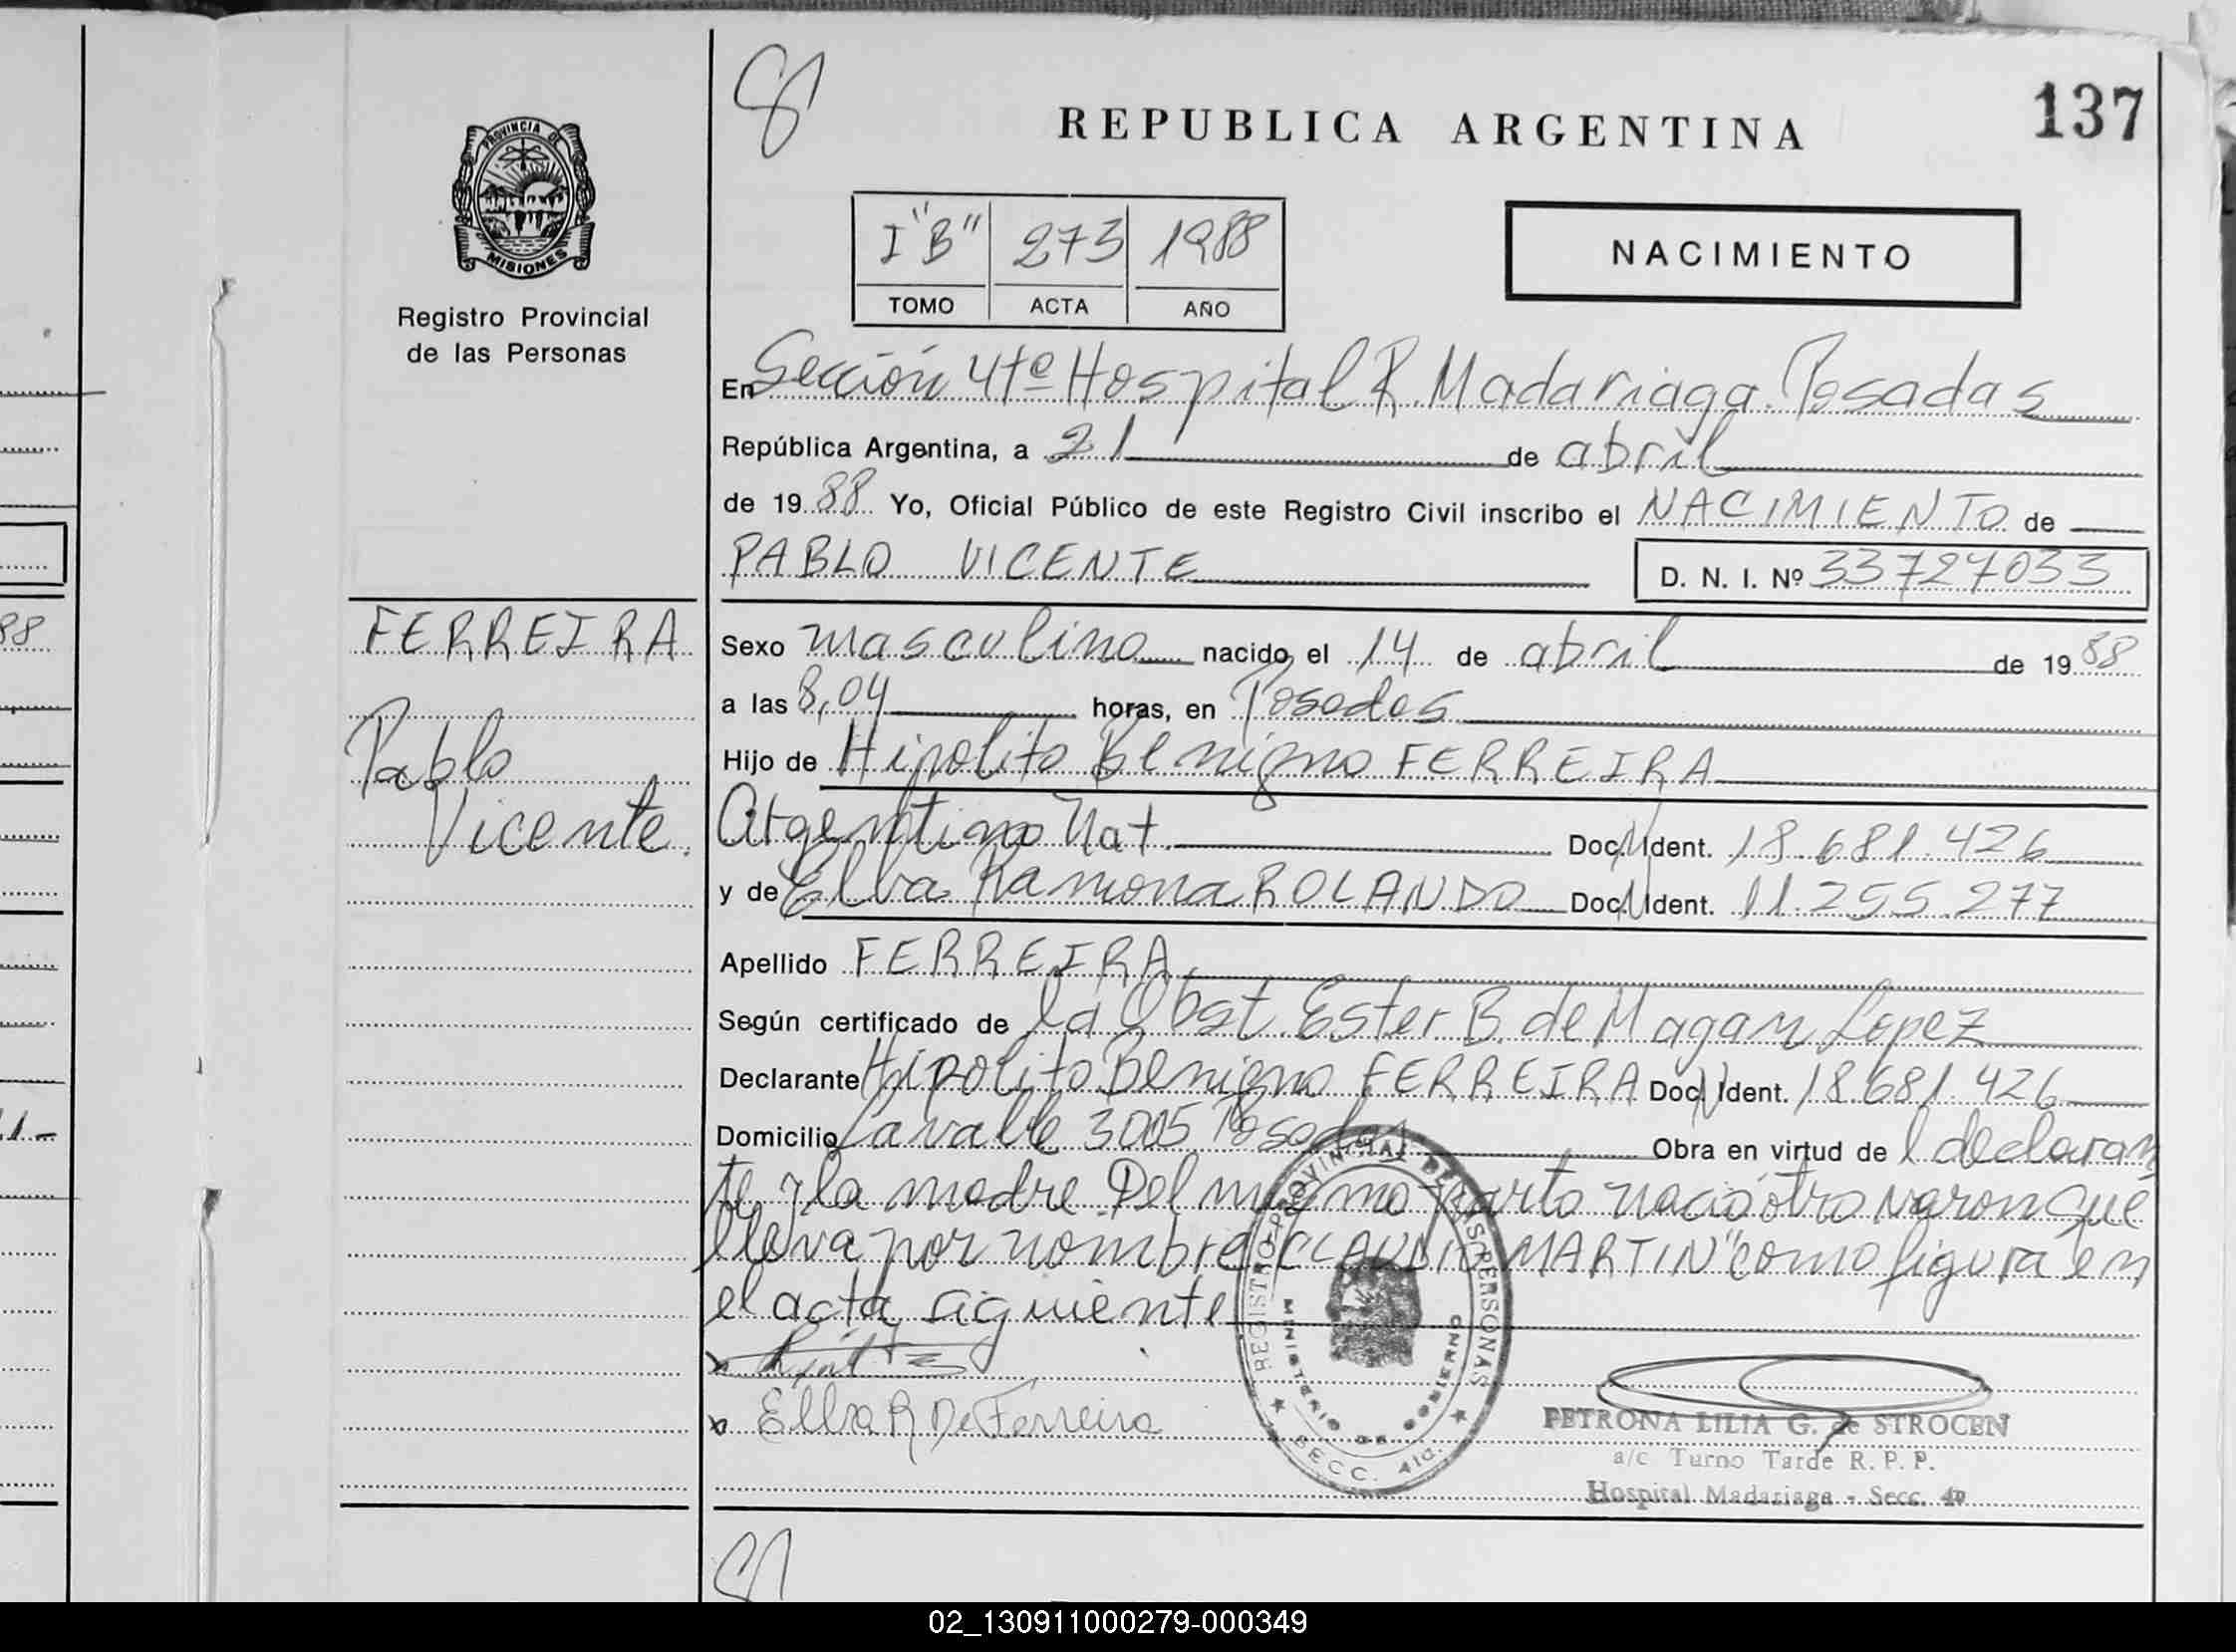 137
REPUBLICA ARGENTINA
PROVINCIA DE
MISIONES
Registro Provincial
de las Personas
I "B" 273 1988
TOMO ACTA AÑO
NACIMIENTO
En Sección 4ta Hospital R. Madariaga. Posadas
República Argentina, a 21 de abril
de 1988 Yo, Oficial Público de este Registro Civil inscribo el NACIMIENTO de
PABLO VICENTE D. N. I. Nº 33727033
FERREIRA
Pablo
Vicente.
Sexo masculino nacido el 14 de abril de 1988
a las 8,04 horas, en Posadas
Hijo de Hipolito Benigno FERREIRA
Argentino Nat. Doc. N Ident. 18.681.426
y de Elba Ramona ROLANDO Doc. N Ident. 11.255.277
Apellido FERREIRA
Según certificado de la Obst. Ester B. de Magan Lopez
Declarante Hipolito Benigno FERREIRA Doc. N Ident. 18.681.426
Domicilio Lavalle 3005 Posadas Obra en virtud de l declaran
te y la madre. Del mismo parto nació otro varon que
lleva por nombre "CLAUDIO MARTIN" como figura en
el acta siguiente
Elba R De Ferreira
REGISTRO PROVINCIAL DE LAS PERSONAS
MINISTERIO DE GOBIERNO
SECC. 4ta.
PETRONA LILIA G. de STROCEN
a/c Turno Tarde R. P. P.
Hospital Madariaga - Secc. 4ª
88
1.-
02_130911000279-000349